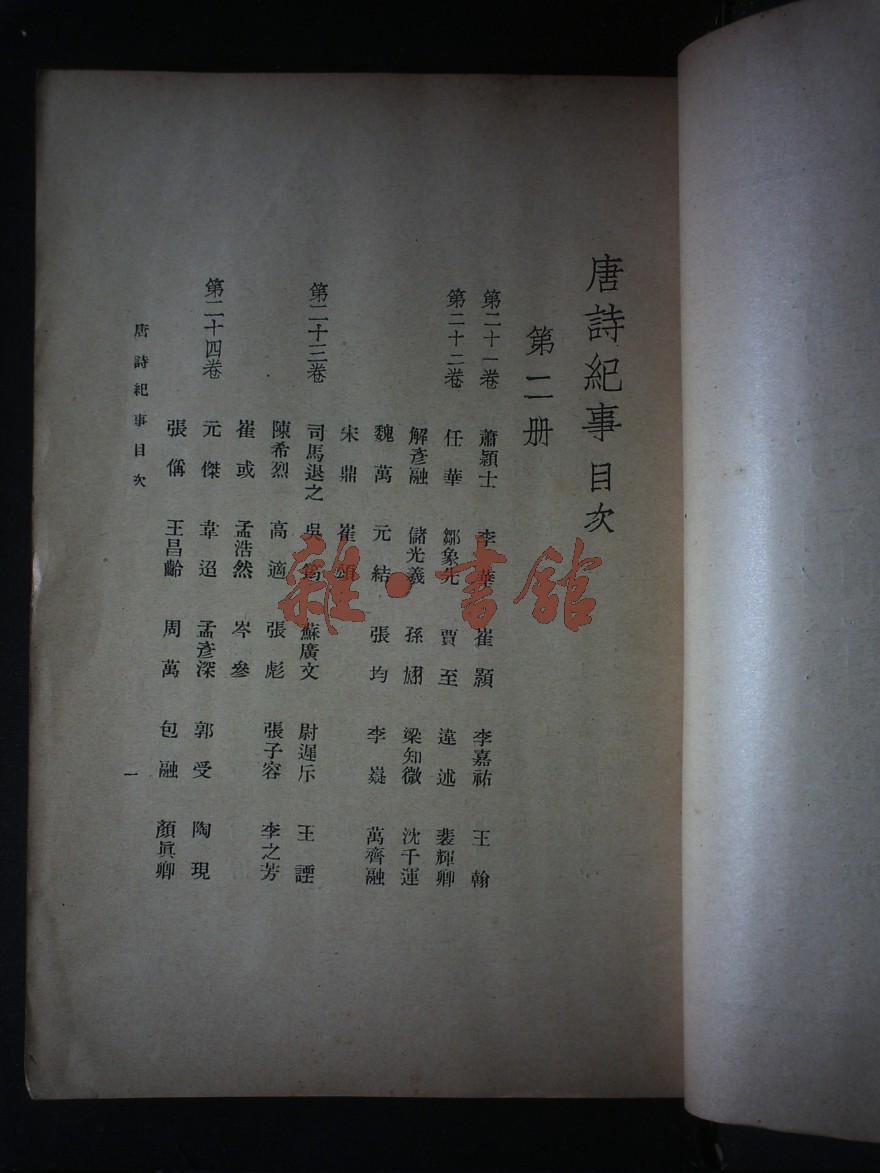 唐詩紀事目次
第二册
第二十一卷 蕭穎士 李華 崔顥 李嘉祐 王翰
第二十二卷 任華 鄒象先 賈至 違述 裴輝卿
解彥融 儲光羲 孫翃 梁知微 沈千運
魏萬 元結 張均 李嶷 萬齊融
宋鼎 崔頌
第二十三卷 司馬退之 吳筠 蘇廣文 尉遲斥 王諲
陳希烈 高適 張彪 張子容 李之芳
崔或 孟浩然 岑參
第二十四卷 元傑 韋迢 孟彥深 郭受 陶現
張偁 王昌齡 周萬 包融 顏眞卿
唐詩紀事目次
一
雜·書館